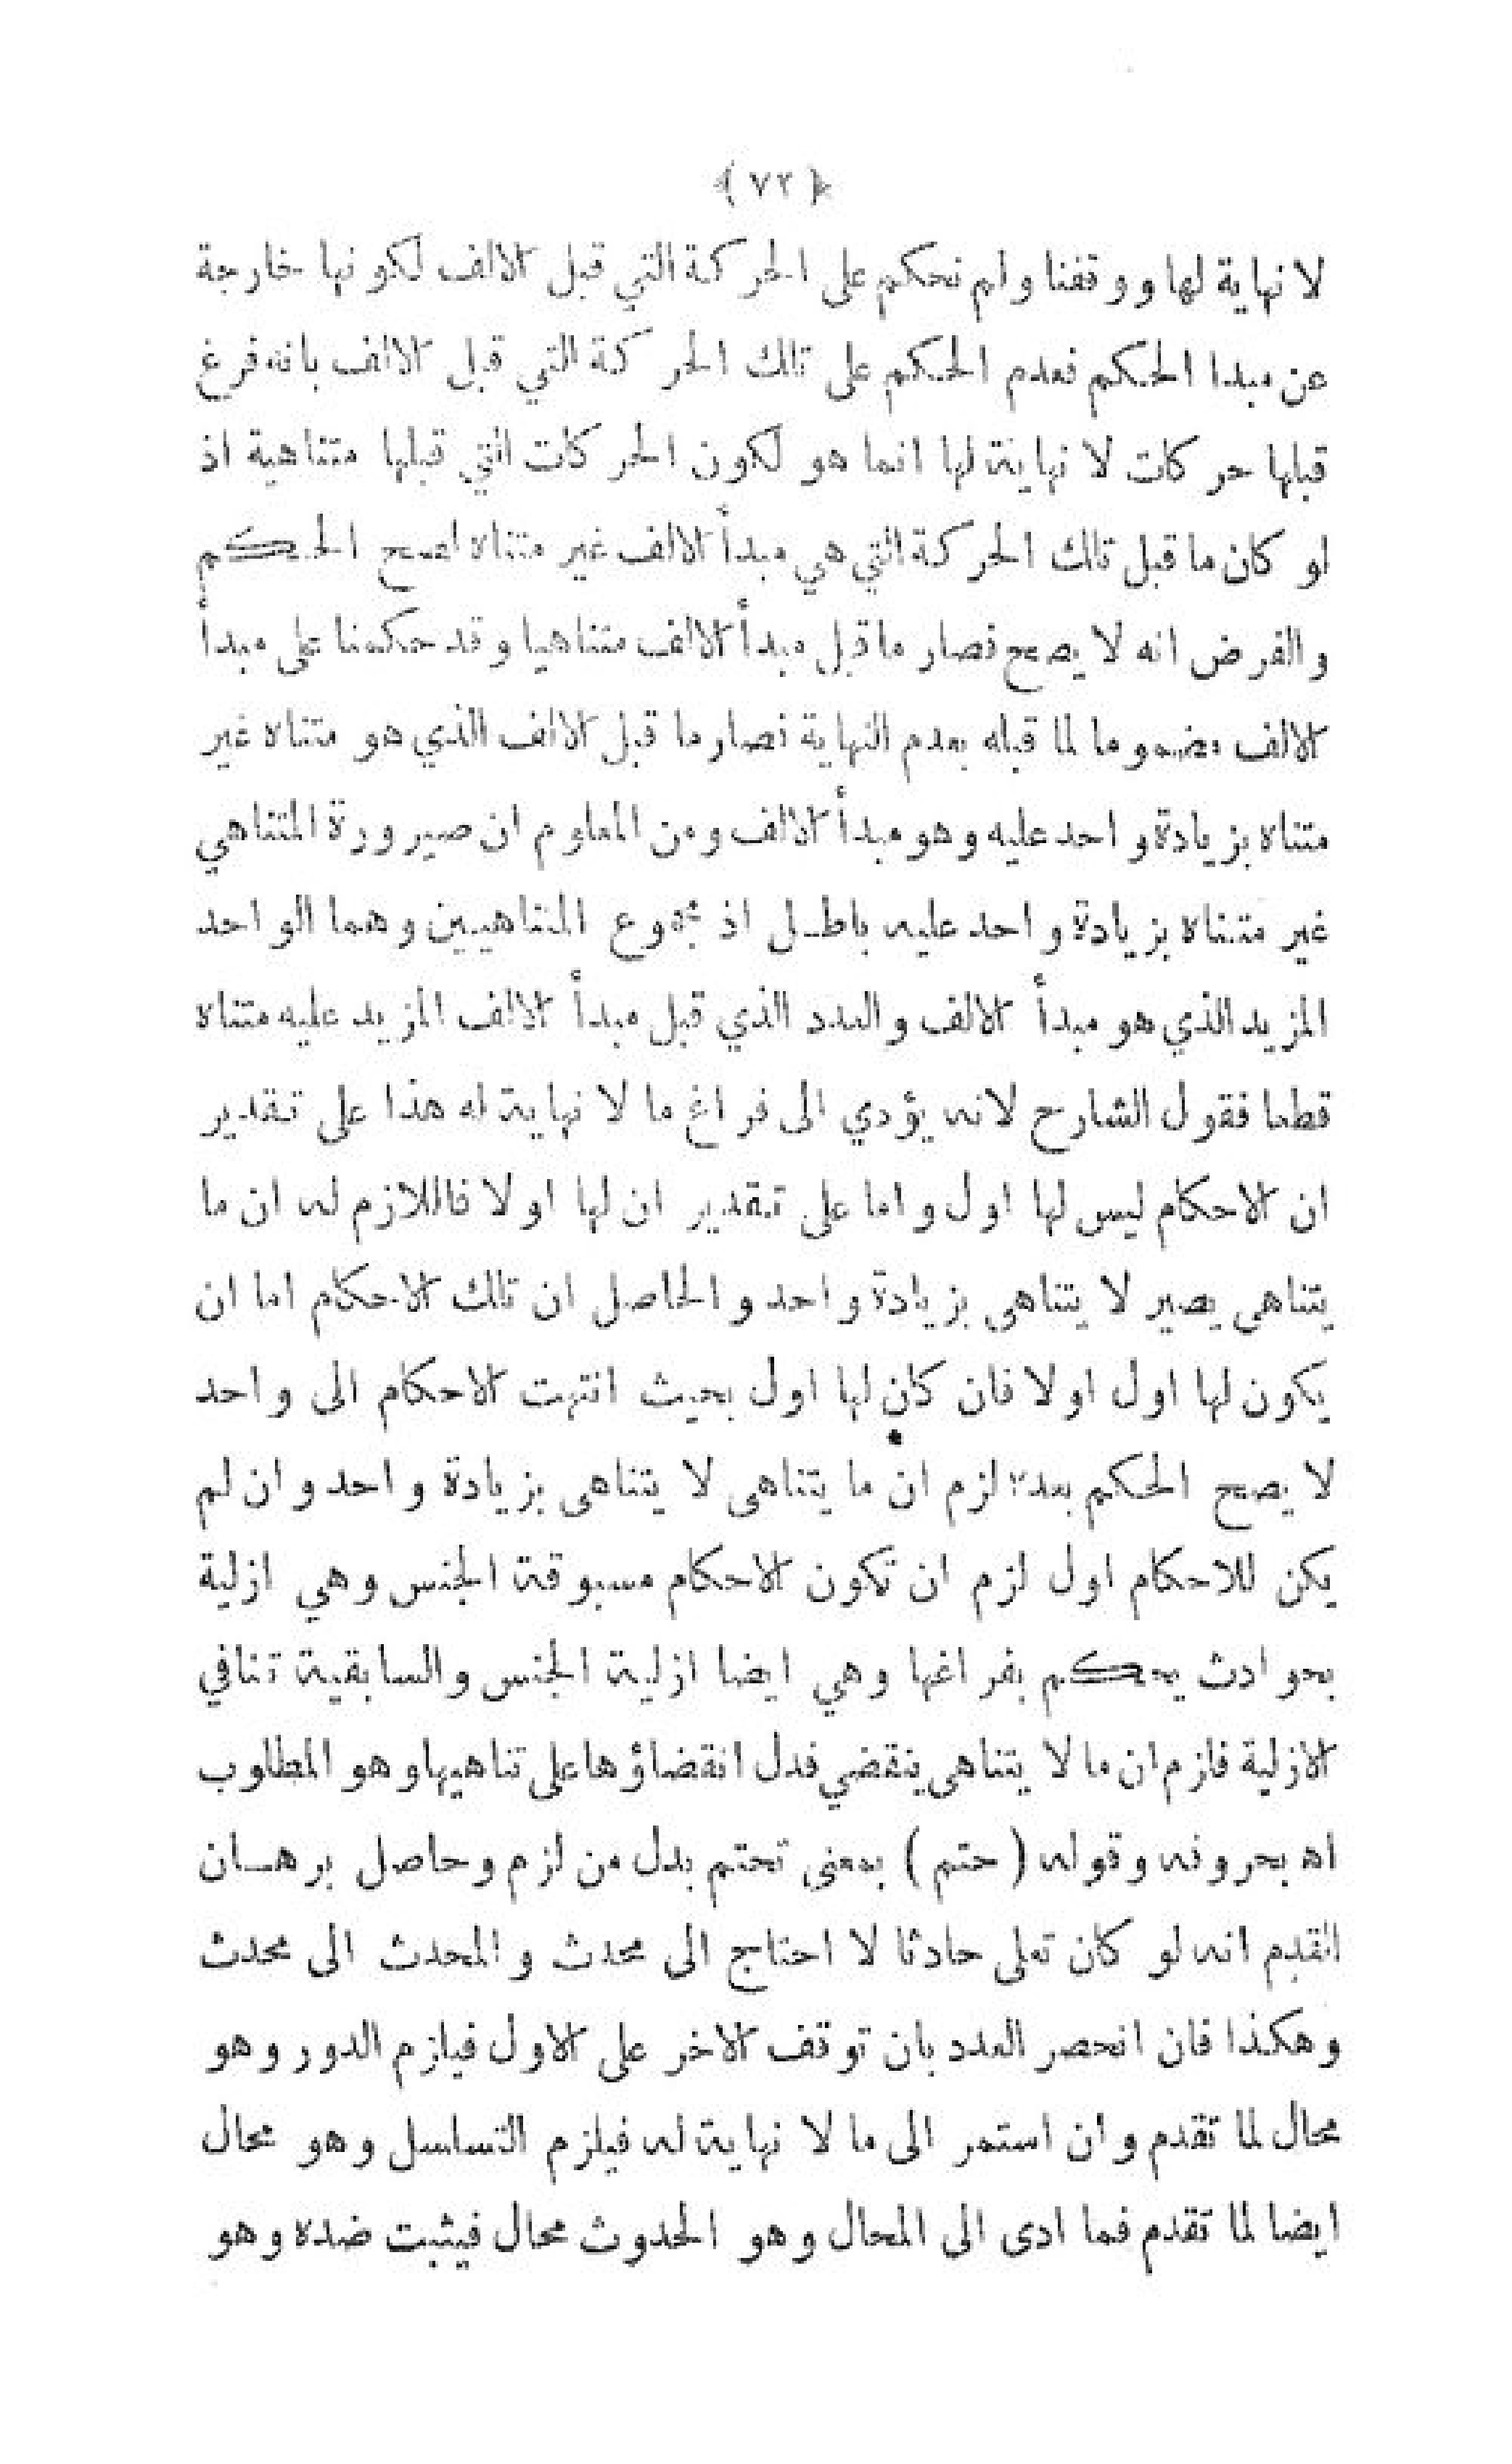 ﴿ ٧٢ ﴾
لا نهاية لها ووقفنا ولم نحكم على الحركة التي قبل الالف لكونها خارجة
عن مبدا الحكم فعدم الحكم على تلك الحركة التي قبل الالف بانه فرغ
قبلها حركات لا نهاية لها انما هو لكون الحركات التي قبلها متناهية اذ
لو كان ما قبل تلك الحركة التي هي مبدأ الالف غير متناه لصح الحكم
والفرض انه لا يصح فصار ما قبل مبدأ الالف متناهيا وقد حكمنا على مبدأ
الالف مضموما لما قبله بعدم النهاية فصار ما قبل الالف الذي هو متناه غير
متناه بزيادة واحد عليه وهو مبدأ الالف ومن المعلوم ان صيرورة المتناهي
غير متناه بزيادة واحد عليه باطل اذ مجموع المتناهيين وهما الواحد
المزيد الذي هو مبدأ الالف والعدد الذي قبل مبدأ الالف المزيد عليه متناه
قطعا فقول الشارح لانه يؤدي الى فراغ ما لا نهاية له هذا على تقدير
ان الاحكام ليس لها اول واما على تقدير ان لها اولا فاللازم له ان ما
يتناهى يصير لا يتناهى بزيادة واحد والحاصل ان تلك الاحكام اما ان
يكون لها اول اولا فان كان لها اول بحيث انتهت الاحكام الى واحد
لا يصح الحكم بعده لزم ان ما يتناهى لا يتناهى بزيادة واحد وان لم
يكن للاحكام اول لزم ان تكون الاحكام مسبوقة الجنس وهي ازلية
بحوادث يحكم بفراغها وهي ايضا ازلية الجنس والسابقية تنافي
الازلية فلزم ان ما لا يتناهى ينقضي فدل انقضاؤها على تناهيها وهو المطلوب
اه بحروفه وقوله (حتم) بمعنى تحتم بدل من لزم وحاصل برهان
القدم انه لو كان تعلى حادثا لا احتاج الى محدث والمحدث الى محدث
وهكذا فان انحصر العدد بان توقف الاخر على الاول فيلزم الدور وهو
محال لما تقدم وان استمر الى ما لا نهاية له فيلزم التسلسل وهو محال
ايضا لما تقدم فما ادى الى المحال وهو الحدوث محال فيثبت ضده وهو